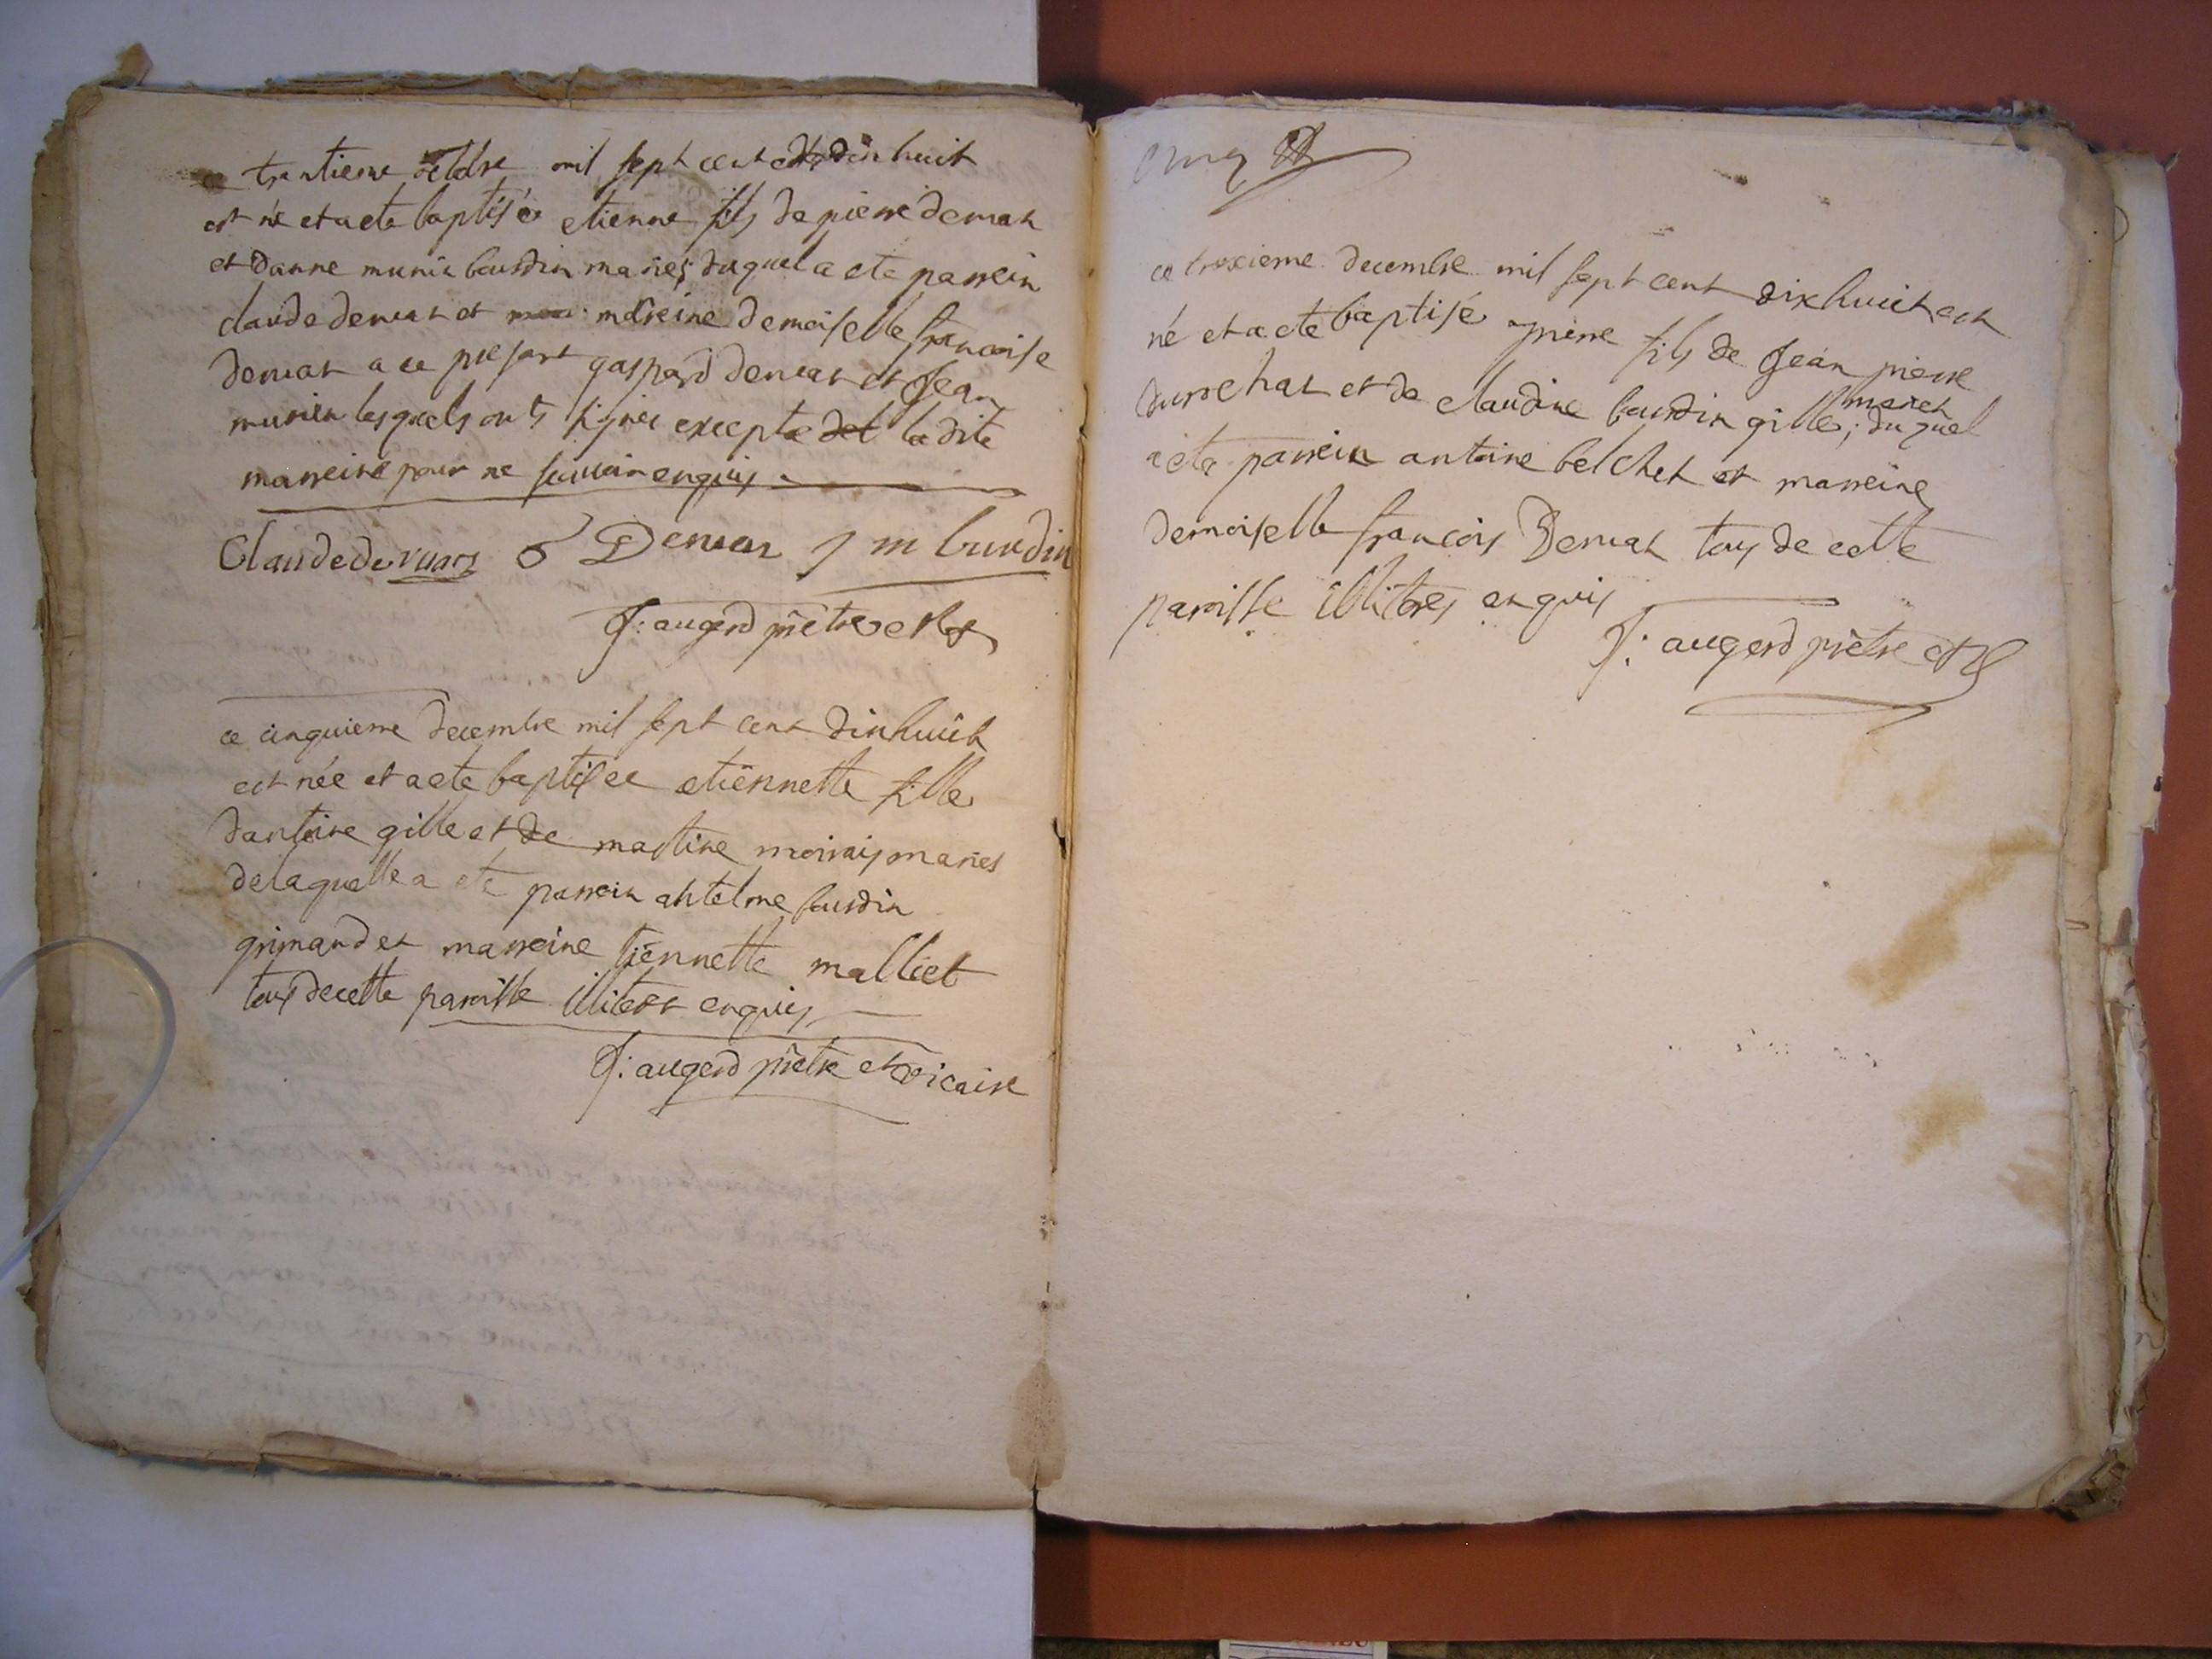 ce trantieme octobre mil sept cent dixhuit
est né et a ete baptisé etienne fils de pierre demar
et danne munié bourdin mariés duquel a ete parrein
claude demar et marreine demoiselle francoise
demar a ce present gaspard demar et Jean
munier lesquels onts signés excepte la dite
marreine pour ne scavoir enquis
Claude de G Demar J m burdin
J: augerd prêtre et
ce cinquieme decembre mil sept cent dixhuit
est née et a ete baptisee etiennette fille
dantoine gille et de martine mariés
delaquelle a ete parrein antelme bourdin
grimand et marreine tiennette malliet
tous de cette paroisse illiteres enquis
J: augerd prêtre et vicaire
cinq
ce troixieme decembre mil sept cent dixhuit est
né et a ete baptisé pierre fils de Jean pierre
et de claudine bourdin gille mariés; duquel
a ete parrein antoine belchet et marreine
demoiselle francois Demar tous de cette
paroisse illiteres enquis
J: augerd prêtre et